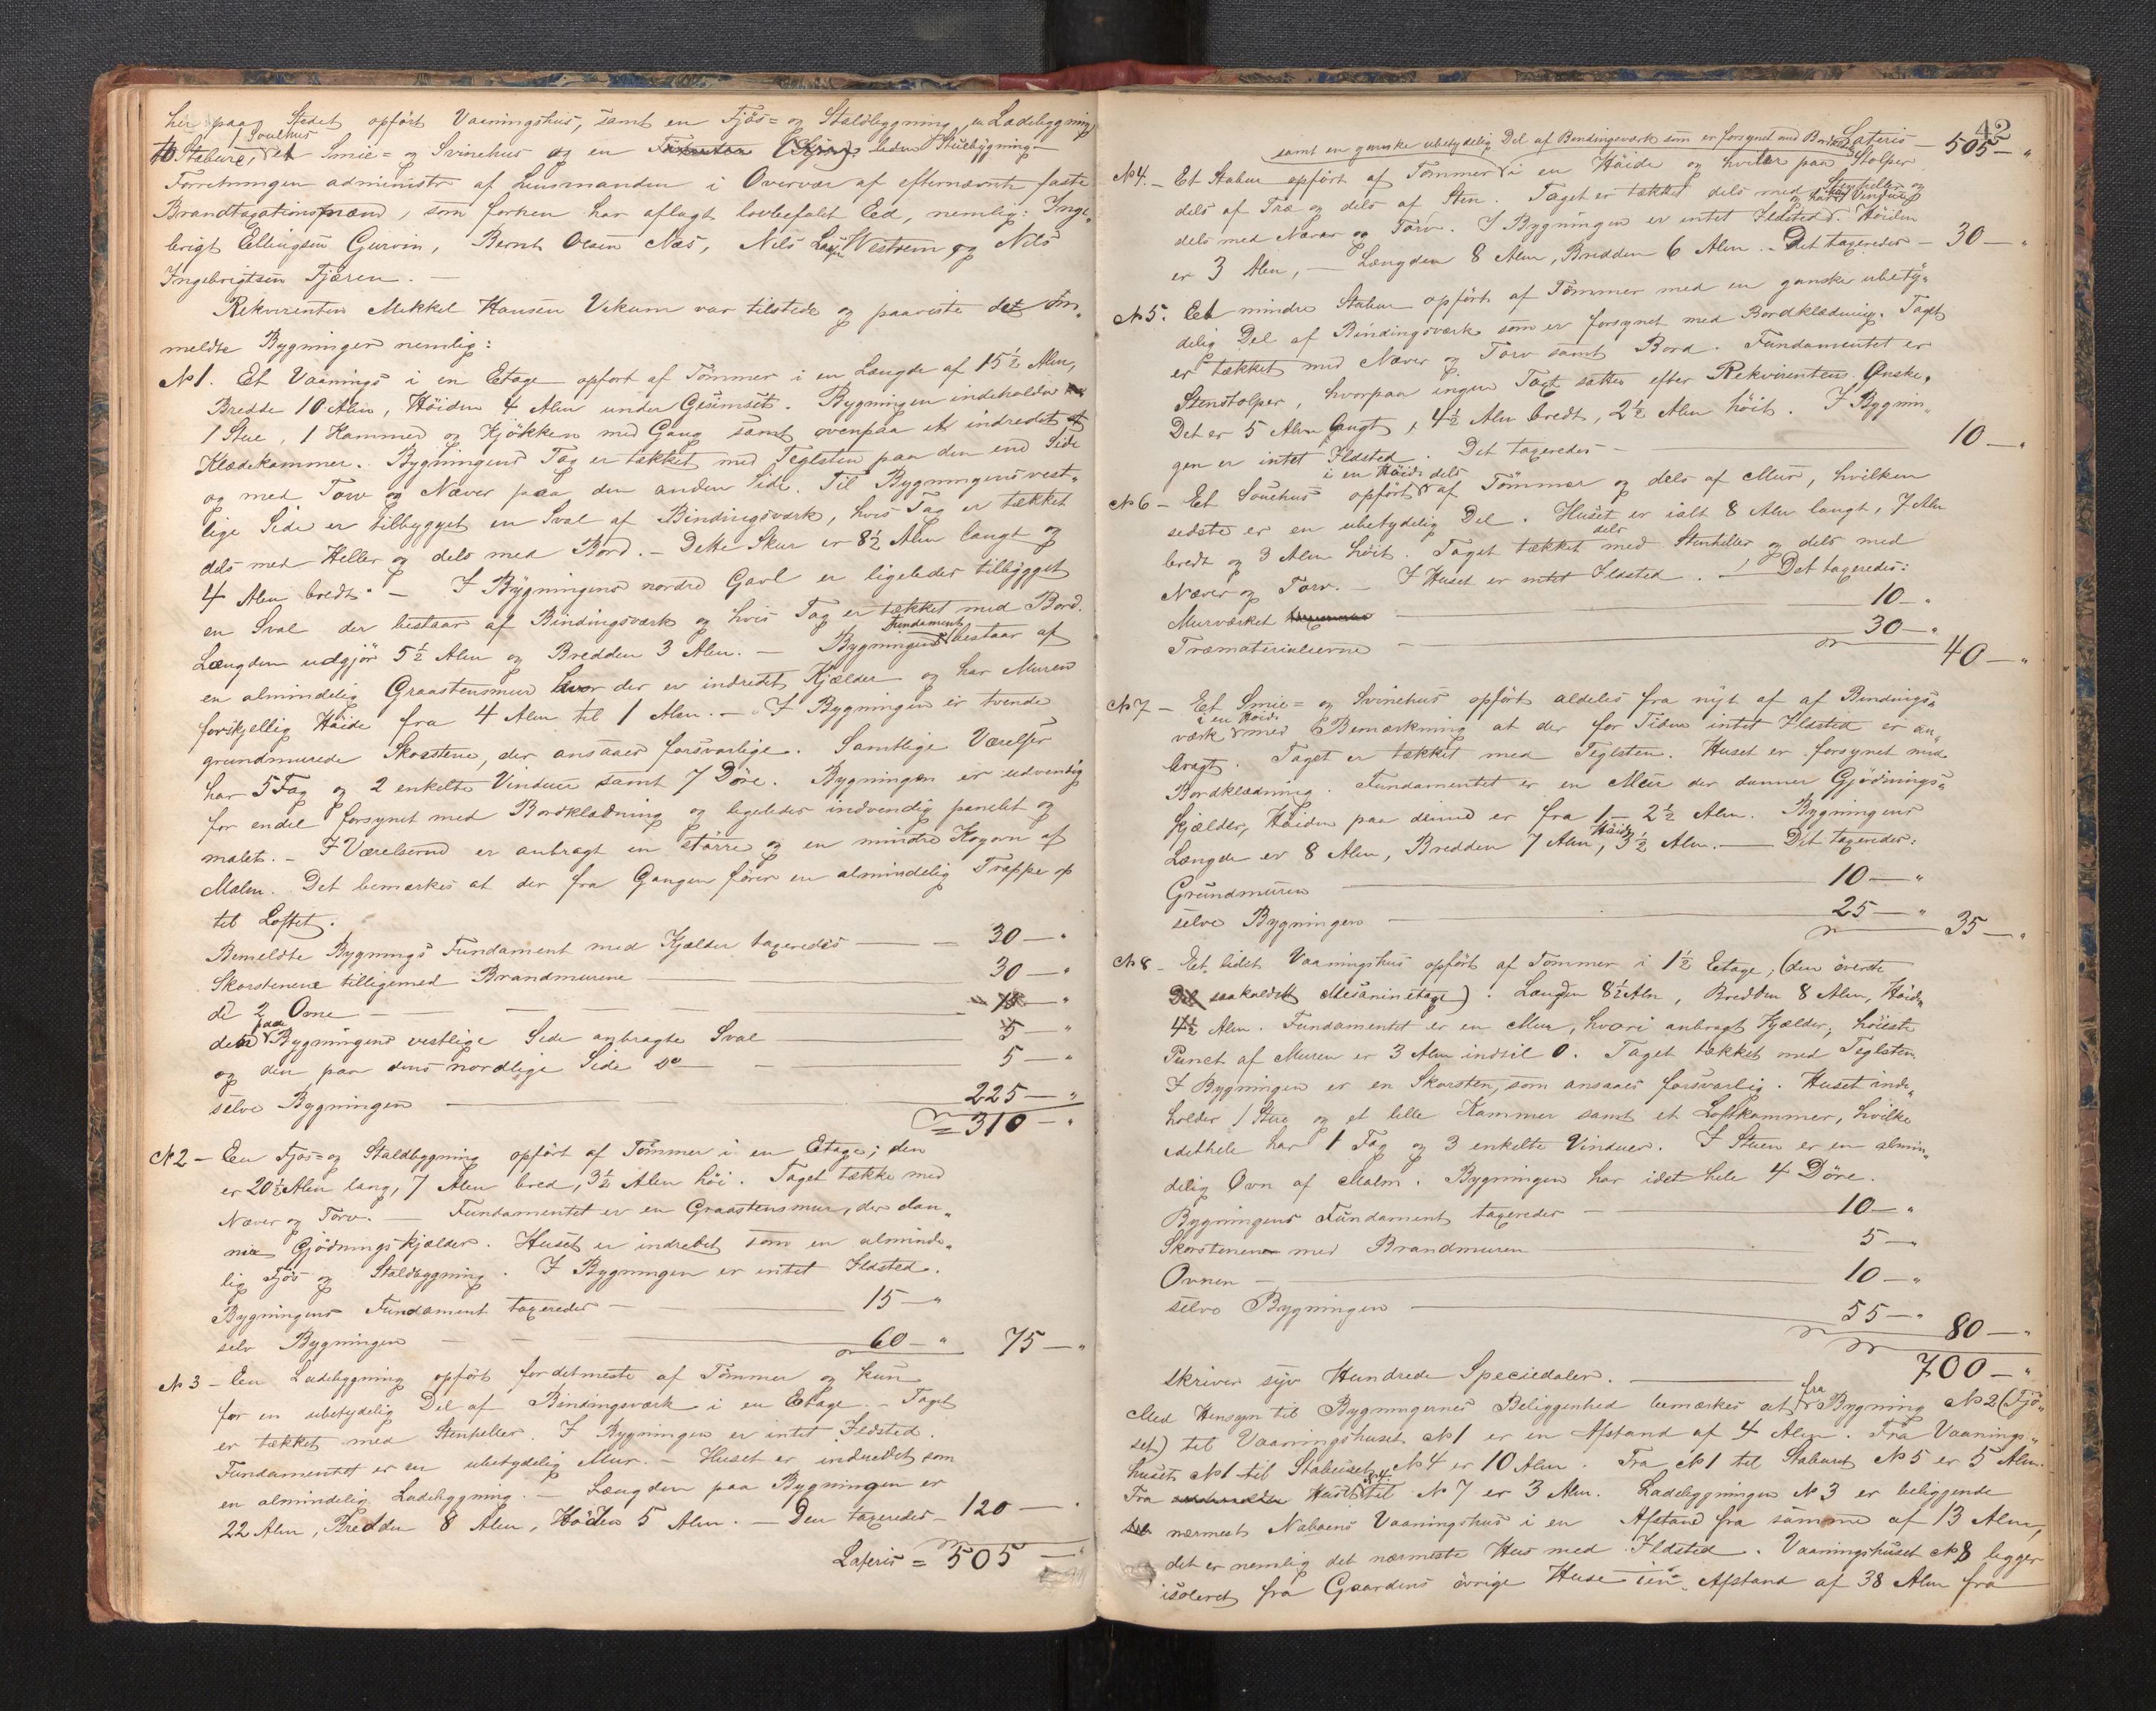 her paa Stedet opført Vaaningshus, samt en Fjøs= og Staldbygning, en Ladebygning
to Stabure, 1 Souehus et Smie= og Svinehus og en liden Stuebygning
Forretningen administr af Lensmanden i Overvær af efternævnte faste
Brandtaxationsmænd, som forhen har aflagt lovbefalet Eed, nemlig: Inge„
brigt Ellingsen Gurvin, Bernt Olsen Næs, Nils Westrem og Nils
Ingebrigtsen Fjæren. —
Rekvirenten Mikkel Hansen Vikum var tilstede og paaviste de an„
meldte Bygninger nemlig:
No 1. Et Vaanings i en Etage opført af Tømmer i en Længde af 15½ Alen,
Bredde 10 Alen, Høiden 4 Alen under Gesimset. Bygningen indeholder
1 Stue, 1 Kammer og Kjøkken med Gang samt ovenpaa et indredet
Klædekammer. Bygningens Tag er tækket med Teglsten paa den ene Side
og med Torv og Næver paa den anden Side. Til Bygningens vest„
lige Side er tilbygget en Sval af Bindingsværk, hvis Tag er tækket
dels med Heller og dels med Bord. – Dette Skur er 8½ Alen langt og
4 Alen bredt. – I Bygningens nordre Gavl er ligeledes tilbygget
en Sval der bestaar af Bindingsværk og hvis Tag er tækket med Bord.
Længden udgjør 5½ Alen og Bredden 3 Alen. – Bygningens Fundament bestaar af
en almindelig Graastensmur hvor der er indredet Kjælder og har Muren
forskjellig Høide fra 4 Alen til 1 Alen. – I Bygningen er tvende
grundmurede Skorstene, der ansaaes forsvarlige. Samtlige Værelser
har 5 Fag og 2 enkelte Vinduer samt 7 Døre. Bygningen er udvendig
for endel forsynet med Bordklædning og ligeledes indvendig panelet og
malet. – I Værelserne er anbragt en større og en mindre Kogovn af
Malm. Det bemærkes at der fra Gangen fører en almindelig Trappe op
til Loftet.
Bemeldte Bygnings Fundament med Kjælder taxeredes — 30 — „
Skorstenene tilligemed Brandmurene — 30 — „
de 2 Ovne — 15 — „
den paa Bygningens vestlige Side anbragte Sval — 5 — „
og den paa dens nordlige Side do — 5 — „
selve Bygningen — 225 — „
= 310 — „
No 2 – En Fjøs= og Staldbygning opført af Tømmer i en Etage; den
er 20½ Alen lang, 7 Alen bred, 3½ Alen høi. Taget tække med
Næver og Torv. — Fundamentet er en Graastensmur, der dan„
ner Gjødningskjælder. Huset er indredet som en alminde„
lig Fjøs og Staldbygning. I Bygningen er intet Ildsted.
Bygningens Fundament taxeredes — 15 — „
selv Bygningen — 60 — „ 75 — „
No 3 – En Ladebygning opført fordetmeste af Tømmer og kun
for en ubetydelig Del af Bindingsværk i en Etage. – Taget
er tækket med Stenheller. I Bygningen er intet Ildsted.
Fundamentet er en ubetydelig Mur. – Huset er indredet som
en almindelig Ladebygning. – Længden paa Bygningen er
22 Alen, Bredden 8 Alen, Høiden 5 Alen. – Den taxeredes – 120 — „
Lateris = 505 — „
42
Lateris — 505 — „
samt en ganske ubetydelig Del af Bindingsværk som er forsynet med Bordklædning
No 4. – Et Stabur opført af Tømmer i en Høide og hviler paa Stolper
dels af Træ og dels af Sten. Taget er tækket dels med Stenheller og
dels med Næver og Torv. I Bygningen er intet Ildsted og heller Vinduer. Høiden
er 3 Alen, — Længden 8 Alen, Bredden 6 Alen. – Det taxeredes — 30 — „
No 5. Et mindre Stabur opført af Tømmer med en ganske ubety„
delig Del af Bindingsværk som er forsynet med Bordklædning. Taget
er tækket med Næver og Torv samt Bord. Fundamentet er
Stenstolper, hvorpaa ingen Taxt sættes efter Rekvirentens Ønske.
Det er 5 Alen langt, 4½ Alen bredt, 2½ Alen høit. I Bygnin„
gen er intet Ildsted. Det taxeredes — 10 — „
No 6 – Et Souehus opført i en Høide dels af Tømmer og dels af Mur, hvilken
sidste er en ubetydelig Del. Huset er ialt 8 Alen langt, 7 Alen
bredt og 3 Alen høit. Taget tækket dels med Stenheller og dels med
Næver og Torv. – I Huset er intet Ildsted. — Det taxeredes:
Murværket — 10 — „
Træmaterialierne — 30 — „ 40 — „
No 7 – Et Smie= og Svinehus opført aldeles fra nyt af af Bindings„
værk i en Høide med Bemærkning at der for Tiden intet Ildsted er an„
bragt. Taget er tækket med Teglsten. Huset er forsynet med
Bordklædning. Fundamentet er en Mur der danner Gjødnings„
kjælder, Høiden paa denne er fra 1 – 2½ Alen. Bygningens
Længde er 8 Alen, Bredden 7 Alen, Høide 3½ Alen. — Det taxeredes:
Grundmuren — 10 — „
selve Bygningen — 25 — „ 35 — „
No 8 – Et lidet Vaaningshus opført af Tømmer i 1½ Etage, (den øverste
saakaldet Mesaninetage). Længden 8½ Aln, Bredden 8 Alen, Høiden
4½ Alen. Fundamentet er en Mur, hvori anbragt Kjælder; høieste
Punct af Muren er 3 Alen indtil 0. Taget tækket med Teglsten.
I Bygningen er en Skorsten, som ansaaes forsvarlig. Huset inde„
holder 1 Stue og et lille Kammer samt et Loftkammer, hvilke
idethele har 1 Fag og 3 enkelte Vinduer. I Stuen er en almin„
delig Ovn af Malm. Bygningen har idet hele 4 Døre.
Bygningens Fundament taxeredes — 10 — „
Skorstenen med Brandmuren — 5 — „
Ovnen — 10 — „
selve Bygningen — 55 — „ 80 — „
700 — „
skriver syv Hundrede Speciedaler. —
Med Hensyn til Bygningernes Beliggenhed bemærkes at fra Bygning No 2 (Fjø„
set) til Vaaningshuset No 1 er en Afstand af 4 Alen. Fra Vaanings„
huset No 1 til Staburet No 4 er 10 Alen. Fra No 1 til Staburet No 5 er 5 Alen.
Fra Huset No 4 til No 7 er 3 Alen. Ladebygningen No 3 er beliggende
nærmest Naboens Vaaningshus i en Afstand fra samme af 13 Alen,
det er nemlig det nærmeste Hus med Ildsted. Vaaningshuset No 8 ligger
isoleret fra Gaardens øvrige Huse i en Afstand af 38 Alen fra